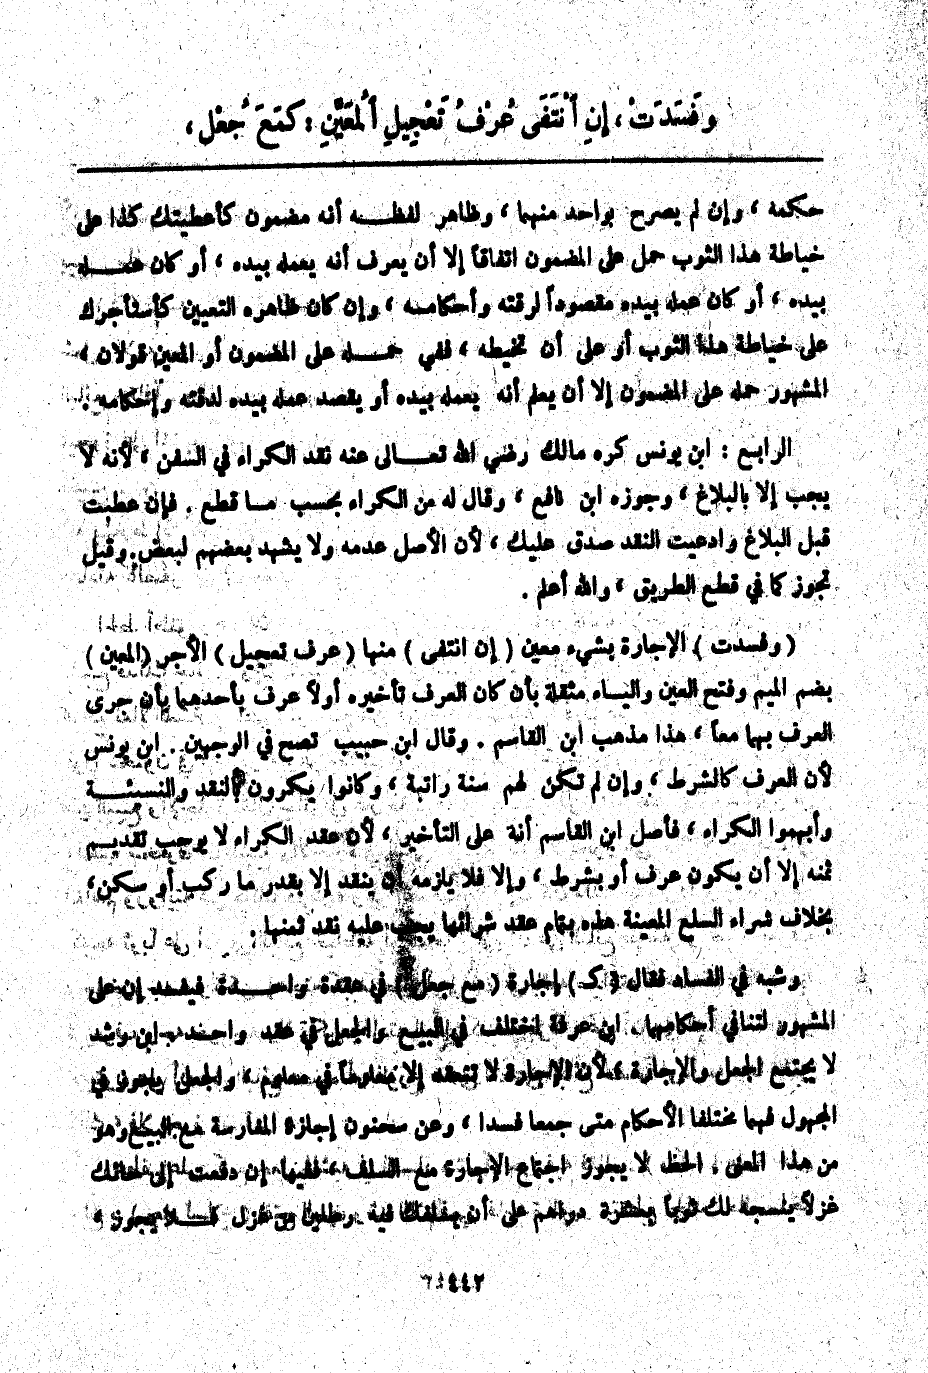 وَفَسَدَتْ ، إِنِ ٱنْتَفَى عُرْفُ تَعْجِيلِ ٱلْمُعَيَّنِ : كَمَعَ جُعْلٍ ،
حكمه ، وإن لم يصرح بواحد منهما ، وظاهر لفظه أنه مضمون كأعطيتك كذا على
خياطة هذا الثوب حمل على المضمون اتفاقاً إلا أن يعرف أنه يعمله بيده ، أو كان عمله
بيده ، أو كان عمله بيده مقصوداً لرقته وأحكامه ، وإن كان ظاهره التعيين كأستأجرك
على خياطة هذا الثوب أو على أن تخيطه ، ففي حمله على المضمون أو المعين قولان ،
المشهور حمله على المضمون إلا أن يعلم أنه يعمله بيده أو يقصد عمله بيده لدقته وإحكامه .
الرابع : ابن يونس كره مالك رضي الله تعالى عنه نقد الكراء في السفن ، لأنه لا
يجب إلا بالبلاغ ، وجوزه ابن نافع ، وقال له من الكراء بحسب ما قطع . فإن عطبت
قبل البلاغ وادعيت النقد صدق عليك ، لأن الأصل عدمه ولا يشهد بعضهم لبعض. وقيل
تجوز كما في قطع الطريق ، والله أعلم .
( وفسدت ) الإجارة بشيء معين ( إن انتفى ) منها ( عرف تعجيل ) الأجر ( المعين )
بضم الميم وفتح العين والياء مثقلة بأن كان العرف تأخيره أولاً عرف بأحدهما بأن جرى
العرف بهما معاً ، هذا مذهب ابن القاسم . وقال ابن حبيب تصح في الوجهين . ابن يونس
لأن العرف كالشرط ، وإن لم تكن لهم سنة راتبة ، وكانوا يكرون بالنقد والنسيئة
وأبهموا الكراء ، فأصل ابن القاسم أنه على التأخير ، لأن عقد الكراء لا يوجب تقديم
ثمنه إلا أن يكون عرف أو بشرط ، وإلا فلا يلزمه أن ينقد إلا بقدر ما ركب أو سكن ،
بخلاف شراء السلع المعينة هذه بتمام عقد شرائها يجب عليه نقد ثمنها .
وشبه في الفساد فقال ( كـ ) إجارة ( مع جعل ) في عقدة واحدة فيفسد إن على
المشهور لتنافي أحكامهما . ابن عرفة اختلف في البيع والجعل في عقد واحد، ابن رشد
لا يجتمع الجعل والإجارة ، لأن الإجارة لا تنعقد إلا معلوماً في معلوم ، والجعل يجوز في
المجهول فهما مختلفا الأحكام متى جمعا فسدا ، وعن سحنون إجازة المغارسة مع البيع وهو
من هذا المعنى . الحط لا يجوز اجتماع الإجارة مع السلف ، ففيها إن دفعت إلى حائك
غزلاً ينسجه لك ثوباً بعشرة دراهم على أن يسلفك فيه رطلين من غزل فلا يجوز ،
٤٤٢